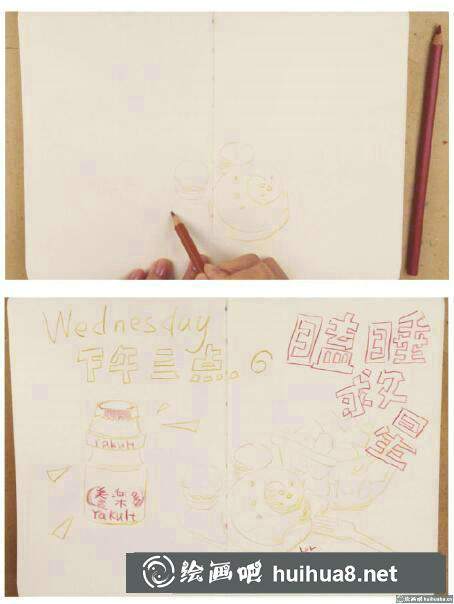 Wednesday
下午三点。6
瞌睡
救星
yakult
yakult
绘画吧 huihua8.net
绘画吧 huihuaba.cn